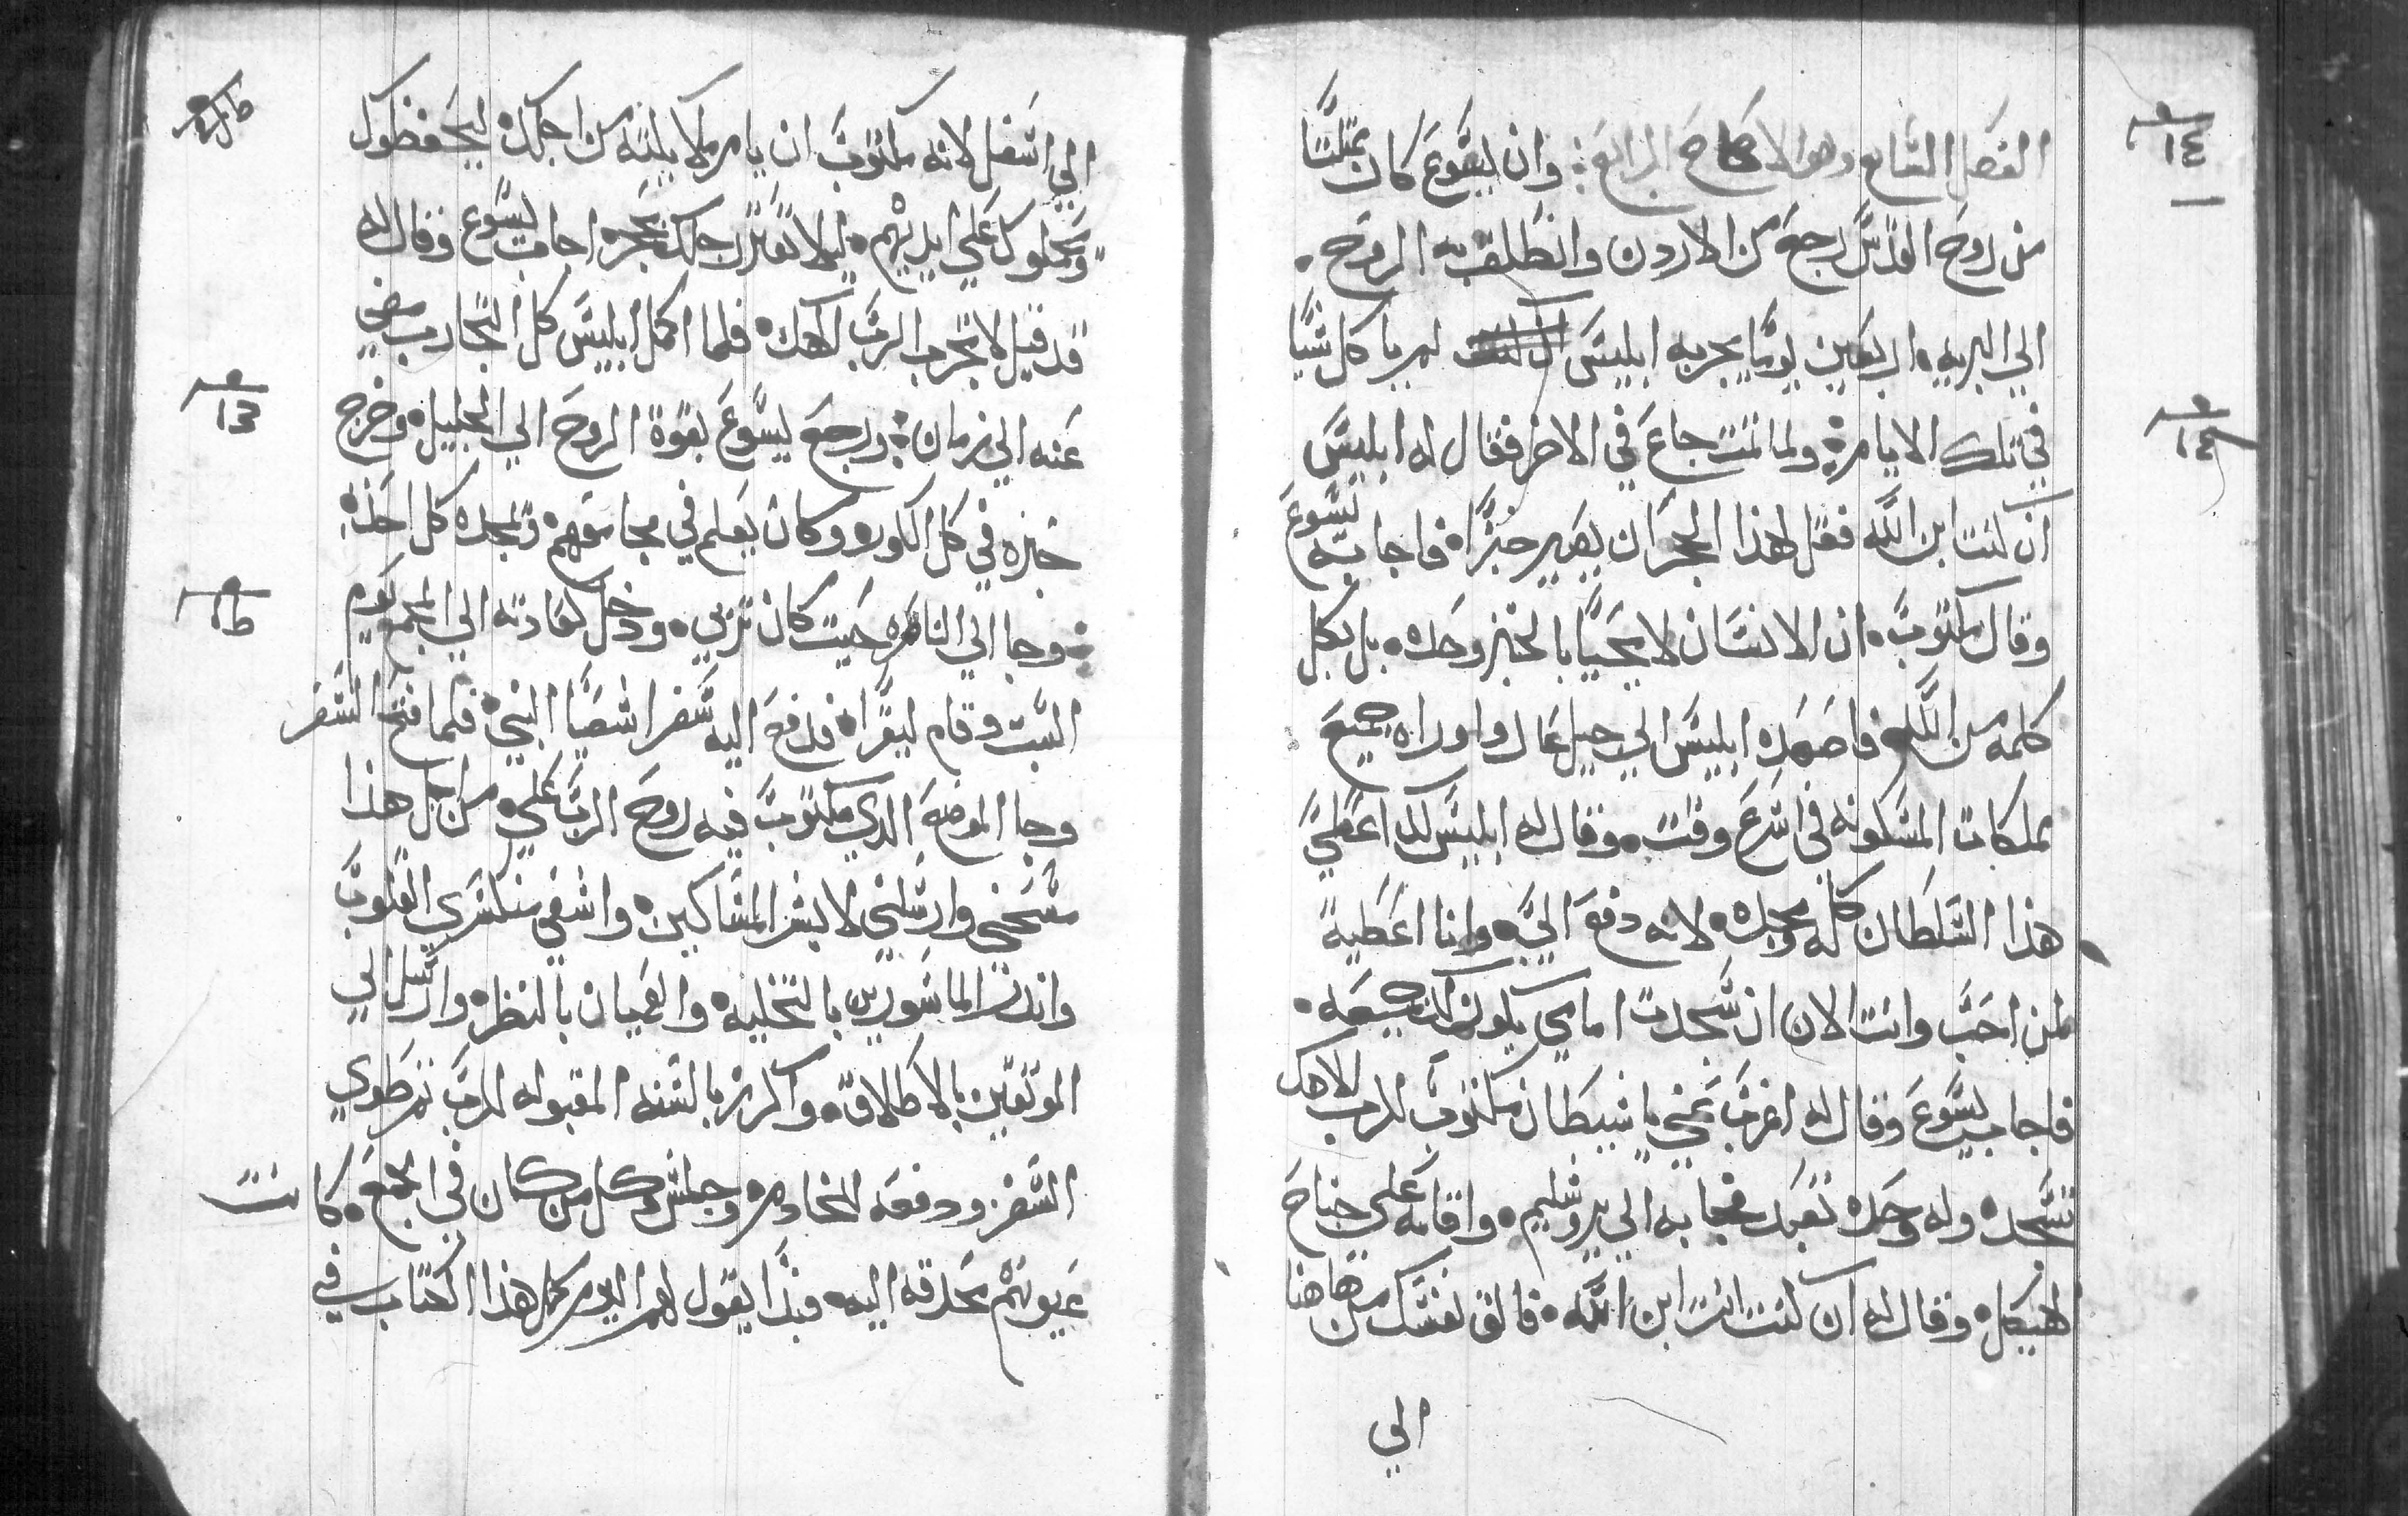 ١٤
الفصل التاسع وهو الاصحاح الرابع ⁘ وان يسوع كان ممتليًا
من روح القدس رجع من الاردن وانطلق به الروح ۰
الي البريه ۰ اربعين يومًا يجربه ابليس لم ياكل شيًا
في تلك الايام ۰ ولما تمت جاع في الاخر فقال له ابليس
ان كنت ابن الله فقل لهذا الحجر ان يصير خبزًا ۰ فاجابه يسوع
وقال مكتوب ۰ ان الانسان لا يحيًا بالخبز وحده ۰ بل بكل
كلمه من الله ۰ فاصعده ابليس الي جبل عال واوراه جميع
مملكات المسكونه في اسرع وقت ۰ وقال له ابليس لك اعطي
هذا السلطان كله ومجده ۰ لانه دفع اليّ ۰ وانا اعطيه
لمن احب وانت الان ان سجدت امامي يكون لك جميعه ۰
فاجاب يسوع وقال له اغرب عني يا شيطان مكتوب للرب الاهك
تسجد ۰ وله وحده تعبد فجا به الي يروشليم ۰ واقامه علي جناح
الهيكل ۰ وقال له ان كنت انت ابن الله ۰ فالق نفسك من هاهنا
الي
الي اسفل لانه مكتوب ان يامر ملايكته من اجلك ليحفظوك
ويحملوك علي ايديهم ۰ ليلا تعثر رجلك بحجر ۰ اجاب يسوع وقال له
قد قيل لا تجرب الرب الهك ۰ فلما اكمل ابليس كل التجارب مضي
عنه الي زمان ⁘ ورجع يسوع بقوة الروح الي الجليل ۰ وخرج
خبره في كل الكوره وكان يعلم في مجامعهم ۰ وتمجده كل احد ۰
⁘ وجا الي الناصره حيت كان تربي ۰ ودخل كعادته الي المجمع يوم
السبت وقام ليقرا ۰ فدفع اليه سفر اشعيًا النبي ۰ فلما فتح السفر
وجا الموضع الدي مكتوب فيه روح الرب علي ۰ من اجل هذا
مسحني وارسلني لابشر المساكين ۰ واشفي منكسري القلوب
وانذر الماسورين بالتخليه ۰ والعميان بالنظر ۰ وارسل الي
الموتقين بالاطلاق ۰ واكرز بالسنه المقبوله للرب تم طوي
السفر ۰ ودفعه للخادم ۰ وجلس وكل من كان في المجمع ۰ كانت
عيونهم محدقه اليه ۰ فبدا يقول لهم اليوم كمل هذا الكتاب في